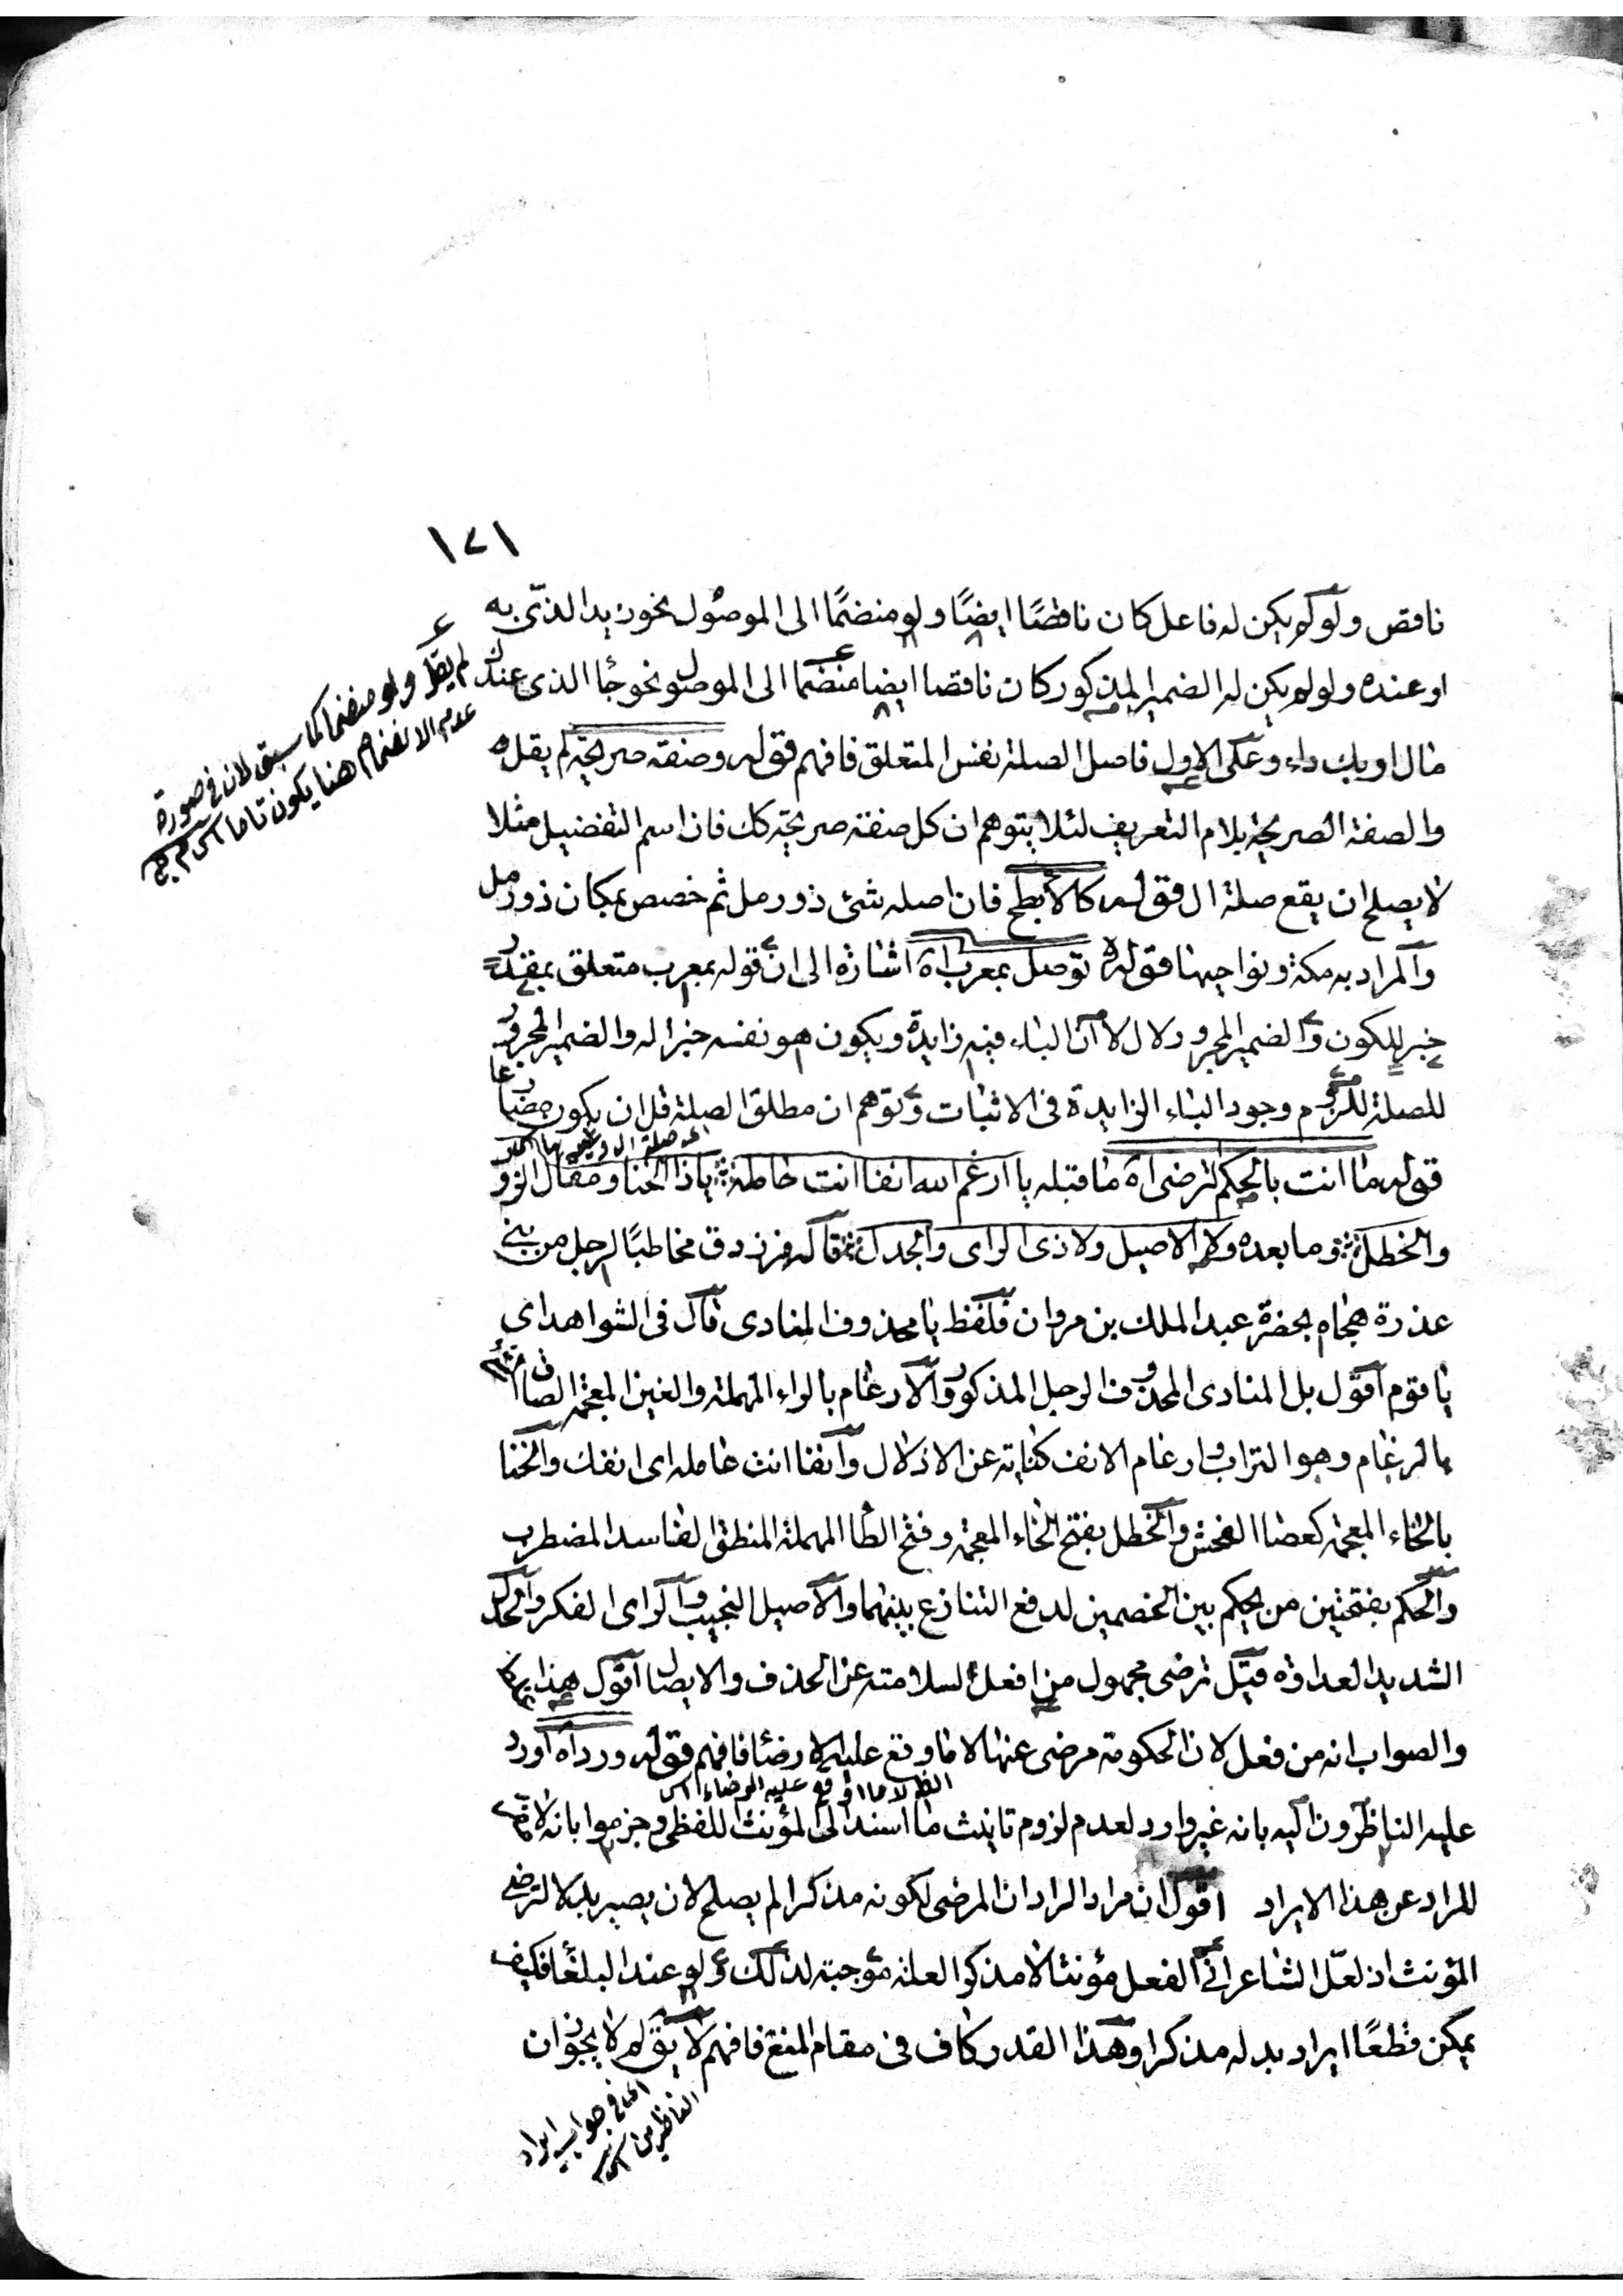 ١٧١
ناقص ولو لم يكن له فاعل كان ناقصًا ايضًا ولو منضمًا الى الموصول نحو زيد الذى به
او عنده ولو لم يكن له الضمير المذكور كان ناقصا ايضا منضما الى الموصول نحو جا الذى عندك
مال او بك داء وعلى الاول فاصل الصلة نفس المتعلق فافهم قوله وصفة صريحة لم يقل
والصفة الصريحة بلام التعريف لئلا يتوهم ان كل صفة صريحة كك فان اسم التفضيل مثلا
لا يصلح ان يقع صلة ال قوله كالابطح فان اصله شئ ذو رمل ثم خصص بمكان ذو رمل
والمراد به مكة ونواحيها قوله توصل بمعرب اه اشارة الى ان قوله بمعرب متعلق بمقدر
خبر للكون والضمير المجرور لال لا ان الباء فيه زايدة ويكون هو نفسه خبرا له والضمير المجرور
للصلة للزوم وجود الباء الزايدة فى الاثبات وتوهم ان مطلق الصلة قل ان يكون مضارعا
قوله ما انت بالحكم الترضى اه ما قبله يا ارغم الله انفا انت حامله يا ذا الخنا ومقال الزور
والخطل وما بعده ولا الاصيل ولا ذى الراى والجدل قاله فرزدق مخاطبًا لرجل من بنى
عذرة هجاه بحضرة عبد الملك بن مروان فلفظ يا محذوف المنادى قال فى الشواهد اى
يا قوم اقول بل المنادى المحذوف الرجل المذكور والارغام بالراء المهملة والغين المعجمة الصاق شئ
بالرغام وهو التراب وارغام الانف كناية عن الاذلال وانفا انت حامله اى انفك والخنا
بالخاء المعجمة كعصا الفحش والخطل بفتح الخاء المعجمة وفتح الطا المهملة المنطق الفاسد المضطرب
والحكم بفتحتين من يحكم بين الخصمين لدفع التنازع بينهما والاصيل النجيب والراى الفكر والجدل
الشديد العداوة قيل ترضى مجهول من افعل لسلامته عن الحذف والايصال اقول هذا
والصواب انه من فعل لان الحكومة مرضى عنها لا ما وقع عليه الارضا فافهم قوله ورد اه اورد
عليه الناظرون اليه بانه غير وارد لعدم لزوم تانيث ما اسند الى المؤنث اللفظى وجزموا بانه لا
للمراد عن هذا الايراد اقول ان مراد الراد ان المرضى لكونه مذكرا لم يصلح لان يصير بدلا لترضى
المؤنث اذ لعل الشاعر اتى الفعل مؤنثا لا مذكرا لعلة موجبة لذلك ولو عند البلغا فكيف
يمكن قطعًا ايراد بدله مذكرا وهذا القدر كاف فى مقام المنع فافهم لا يق لم لا يجوز ان
لم يقل ولو منضما كما سبق لان فى صورة
عدم الانضمام هنا يكون تاما
لا ما وقع عليه الرضاء
فى جواب ايراد
الناظرين